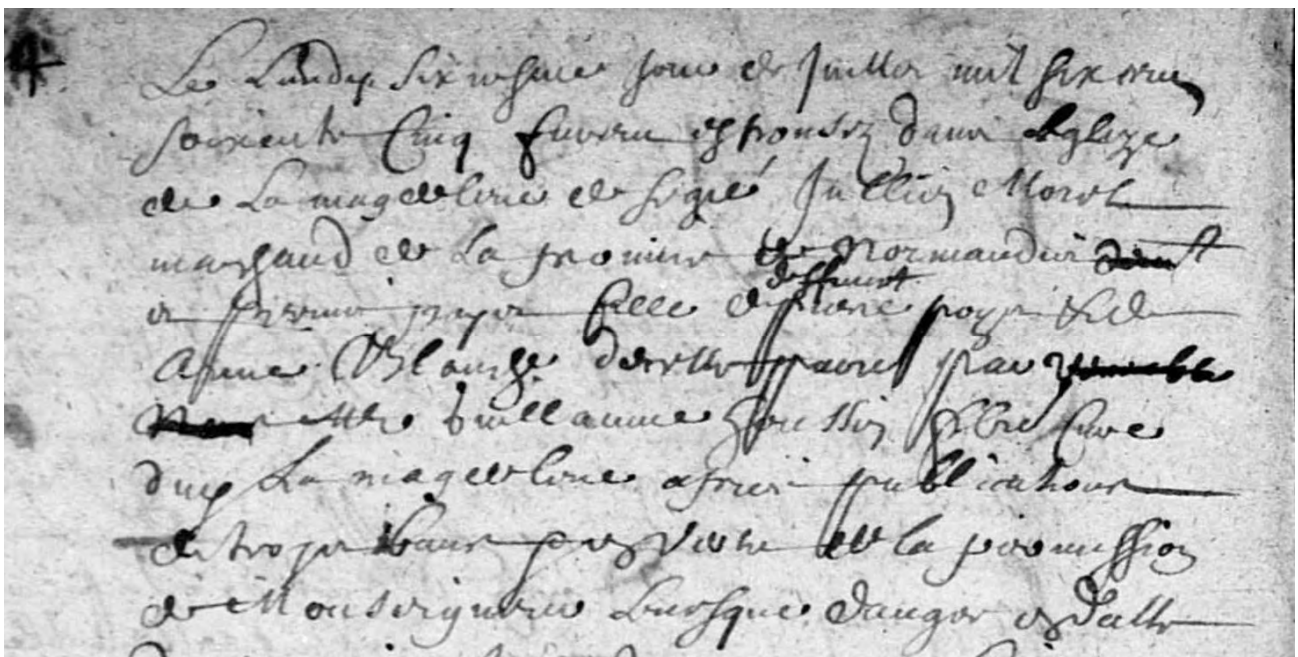 4
Le Lundy sixiesme jour de Juillet mil six cens
soixente Cinq furent espousez dans leglize
de La magdeleine de segré Jullien Morel
marchand de La province de Normandie
et perrine fille deffunct pierre et de
Anne Blanche par
Mtre Guillaume pbre Curé
dud La magdeleine apres publications
de troys bans en vertu de la permission
de Monseigneur Levesque dangers